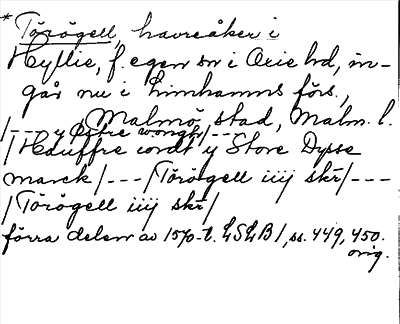 * Törögell, havreåker i
Hyllie, f. egen sn i Oxie hd, in-
går nu i Limhamns förs.,
Malmö stad, Malm. l.
/--- y Östre wongh/---
/Hauffre iordt y Store Dysse
marck/---/Törögell iiij skr/---
/Törögell iiij skr/
förra delen av 1570-t. LSLB 1, ss. 449, 450.
orig.